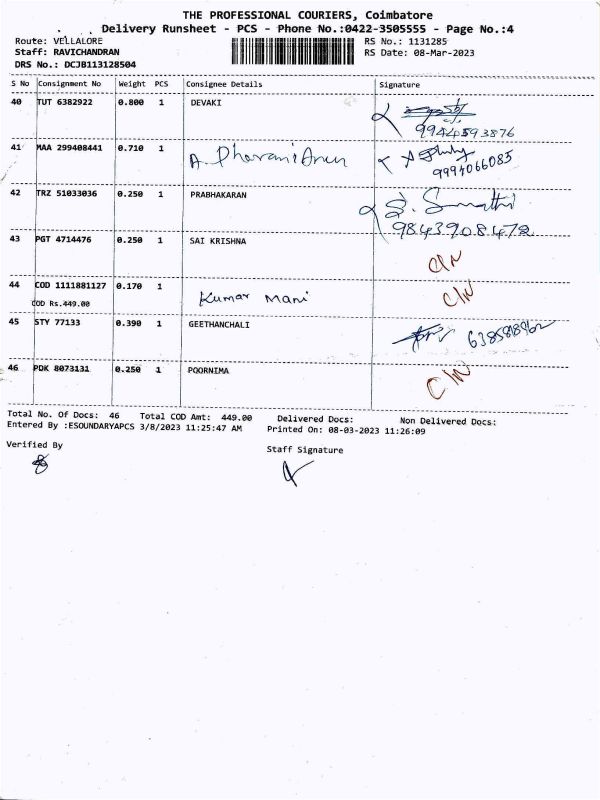 THE PROFESSIONAL COURIERS, Coimbatore
Delivery Runsheet - PCS - Phone No.:0422-3505555 - Page No.:4
Route: VELLALORE
RS No.: 1131285
Staff: RAVICHANDRAN
RS Date: 08-Mar-2023
DRS No.: DCJB113128504
S No Consignment No Weight PCS Consignee Details Signature
40 TUT 6382922 0.800 1 DEVAKI
9944593876
41 MAA 299408441 0.710 1 A. Dharani Arun
9994066085
42 TRZ 51033036 0.250 1 PRABHAKARAN
9843908472
43 PGT 4714476 0.250 1 SAI KRISHNA C/N
44 COD 1111881127 0.170 1 Kumar Mani C/N
COD Rs.449.00
45 STY 77133 0.390 1 GEETHANCHALI
46 PDK 8073131 0.250 1 POORNIMA C/N
Total No. Of Docs: 46 Total COD Amt: 449.00 Delivered Docs: Non Delivered Docs:
Entered By :ESOUNDARYAPCS 3/8/2023 11:25:47 AM Printed On: 08-03-2023 11:26:09
Verified By
Staff Signature